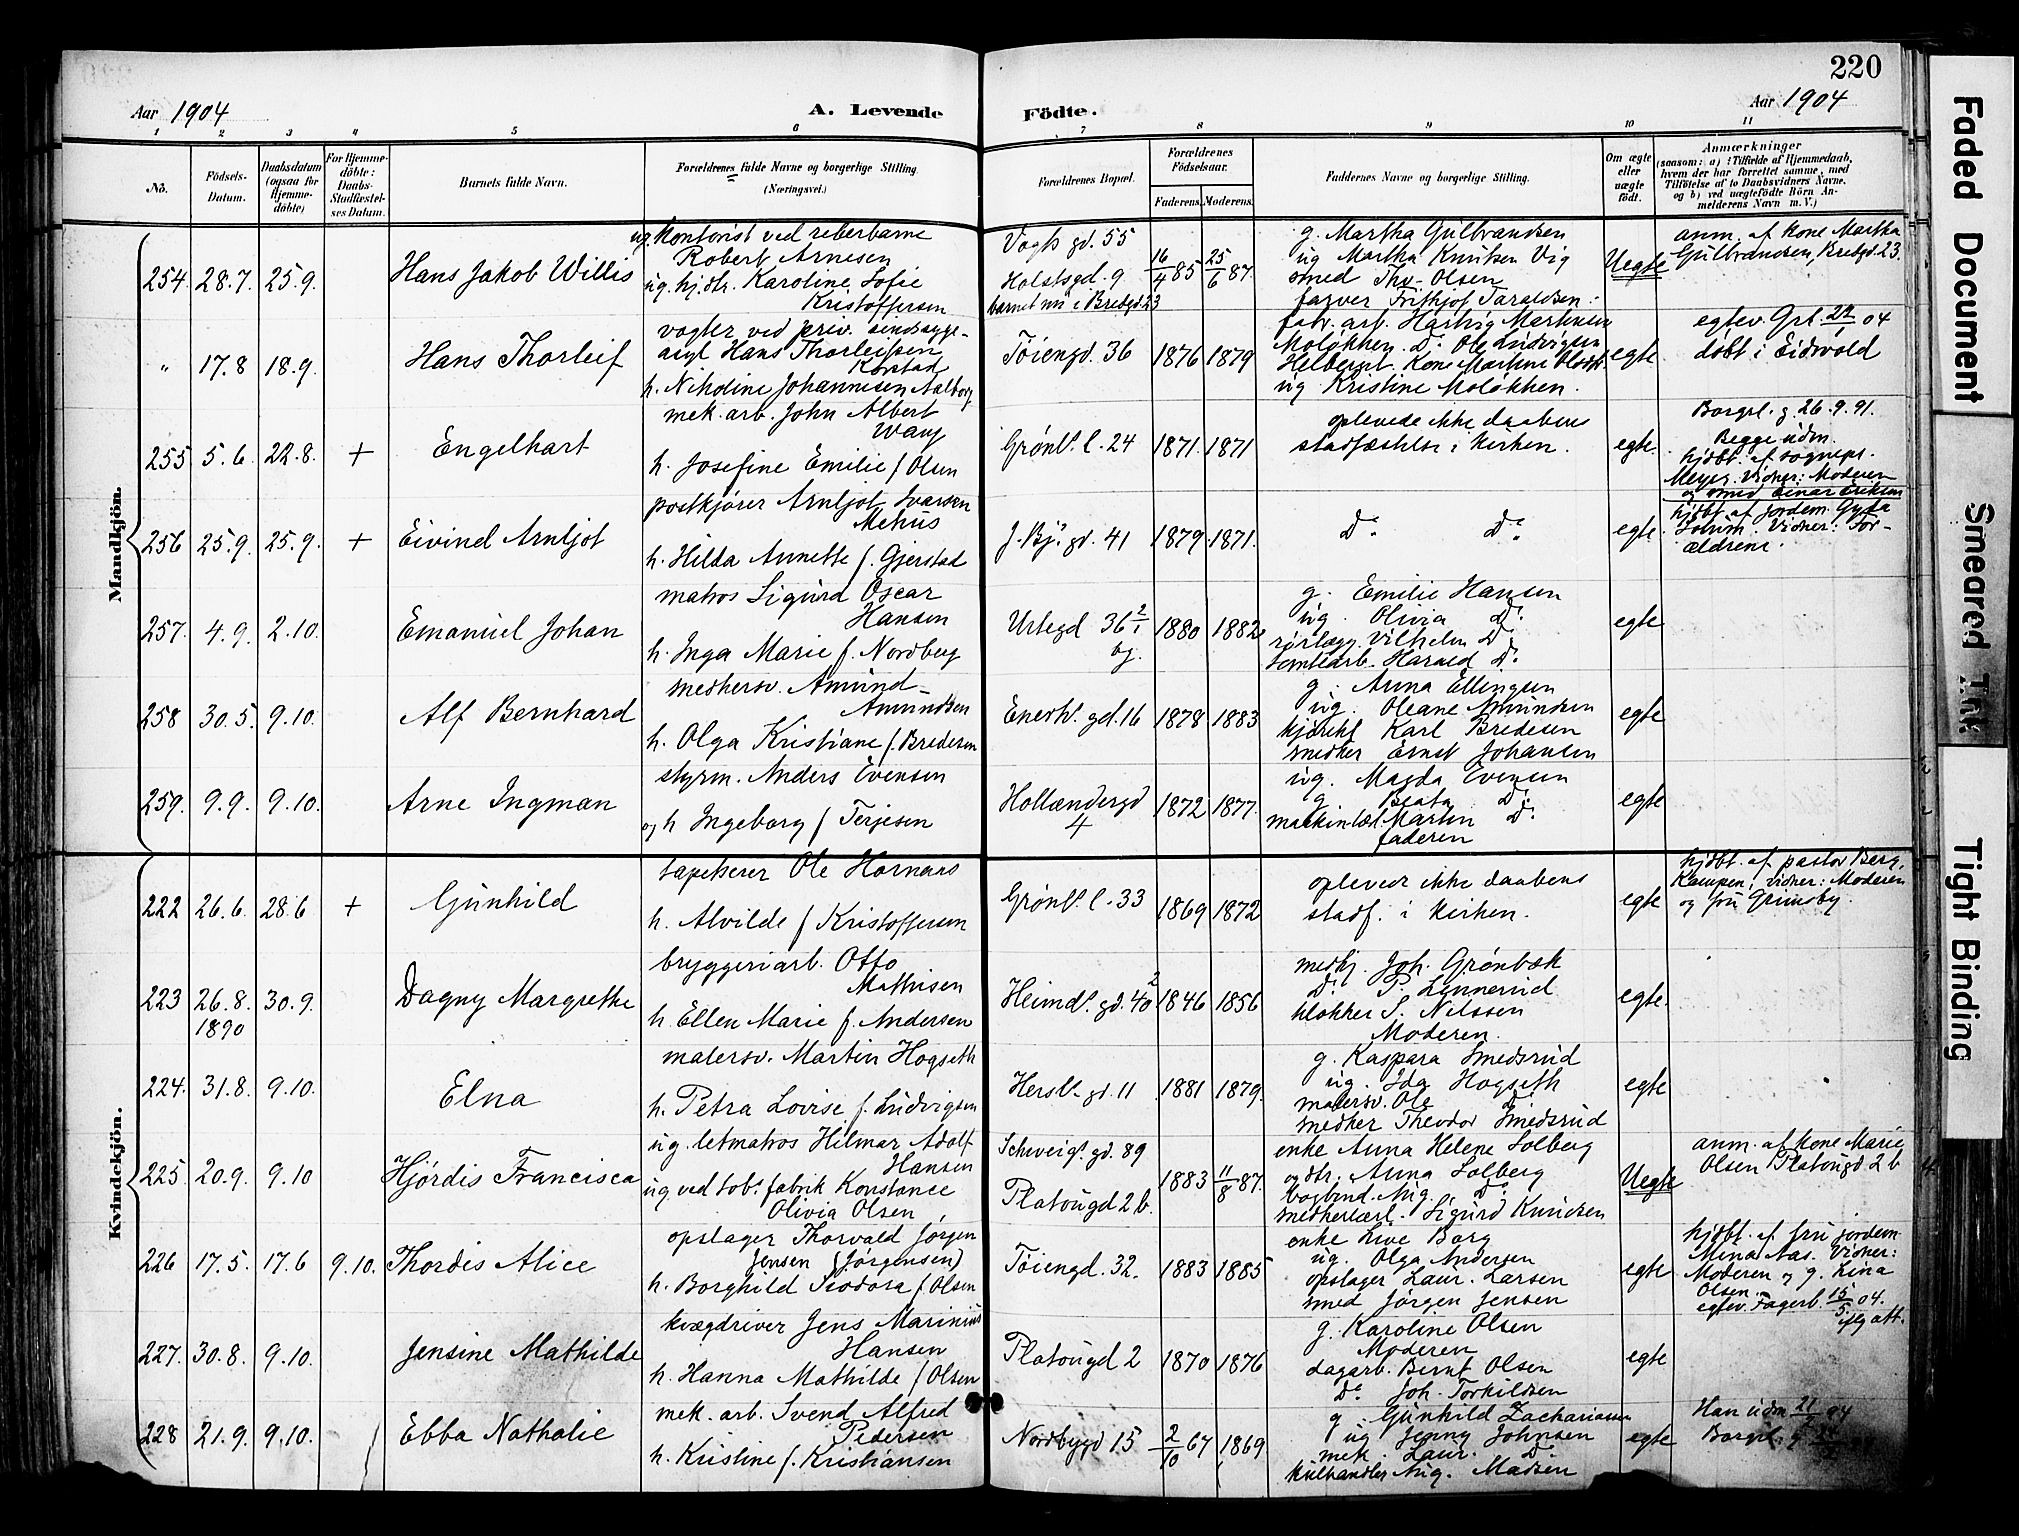 220
Aar 1904
A. Levende
Födte.
Aar 1904
1 2 3 4 5 6 7 8 9 10 11
No.
Födsels-
Datum.
Daabsdatum
(ogsaa for
Hjemme-
döbte)
For Hjemme-
döbte:
Daabs-
Stadfæstel-
ses Datum.
Barnets fulde Navn.
Forældrenes fulde Navne og borgerlige Stilling.
(Næringsvei.)
Forældrenes Bopæl.
Forældrenes
Födselsaar.
Faderens.
Moderens.
Faddernes Navne og borgerlige Stilling.
Om ægte
eller
uægte
födt.
Anmærkninger
(saasom: a) i Tilfælde af Hjemmedaab,
hvem der har forrettet samme, med
Tilföielse af to Daabsvidners Navne,
og b) ved uægtefödte Börn An-
melderens Navn m. V.)
Mandkjön.
254. 28.7. 25.9. Hans Jakob Willis
ug. kontorist ved reberbane
Robert Arnesen
ug. hj. dtr. Karoline Sofie
Kristoffersen
Vogts gd. 55
Holstsgd. 9
barnet nu i Bredgd 23
16/4 85 25/6 87.
g. Martha Gulbrandsen
ug Martha Knutsen Vig
smed Thv. Olsen
farver Frithjof Taraldsen.
Uegte
anm. af kone Martha
Gulbrandsen, Bredgd. 23.
" 17.8 18.9. Hans Thorleif
vogter ved priv. sindssyge-
asyl Hans Thorleifsen
Korstad
h. Nikoline Johannesen Aalborg
Töiengd. 36
1876 1879
fabr. arb. Hartvig Martinsen
Moløkken. Do Ole Ludvigsen
Helberget. Kone Martine
ug Kristine Moløkken.
egte
egtev. Grl. 22/ 04
döbt i Eidsvold
255 5.6. 22.8. + Engelhart
mek. arb. John Albert
Wang
h. Josefine Emilie f Olsen
Grønl.s l. 24
1871. 1871
oplevede ikke daabens
stadfæstelse i kirken.
egte.
Borgrl. g. 26.9.91.
Begge udm.
hjdbt. af sognepr.
Meyer. Vidner: Moderen
og smed Einar Eriksen
256 25.9. 25.9. + Eivind Arntjot
postkjører Arntjot Ivarsen
Mehus
h. Hilda Annette f. Gjerstad
J. Bj.s gd. 41
1879. 1871.
Do Do
egte.
hjdbt af jordem. Gyda
Vidner: For-
ældrene.
257. 4.9. 2.10. Emanuel Johan
matros Sigurd Oscar
Hansen
h. Inga Marie f. Nordberg
Urtegd 36 2/1
bg.
1880 1882
g. Emilie Hansen
ug. Olivia Do
rørlægg. Vilhelm Do
tomtearb. Harald Do
egte
258 30.5. 9.10. Alf Bernhard
snedkersv. Amund
Amundsen
h. Olga Kristiane f. Bredesen
Enerh.s gd. 16
1878 1883
g. Anna Ellingsen
ug. Oleane Amundsen
Karl Bredesen
snedker Ernst Johansen
egte
259. 9.9. 9.10. Arne Ingman
styrm. Anders Evensen
og h Ingeborg f Terjesen
Hollændergd
4
1872 1877.
ug. Magda Evensen
g Beata Do
maskinlæ. Martin Do
faderen
egte
Kvindekjön.
222 26.6. 28.6 + Gunhild
tapetserer Ole Hornæs
h. Alvilde f Kristoffersen
Grønl.s l. 33
1869 1872
oplever ikke daabens
stadf. i kirken.
egte
hjdbt. af pastor Berg,
Kampen, Vidner: Moderen
og fru Grimsby.
223 26.8.
1890
30.9. Dagny Margrethe
bryggeriarb. Otto
Mathisen
h. Ellen Marie f. Andersen
Heimd.s gd. 40 2
1846 1856
medhj. Joh. Grønbæk
Do P. Linnerud
klokker S. Nilssen
Moderen.
egte.
224. 31.8. 9.10. Elna
malersv. Martin Hogseth
h. Petra Lovise f. Ludvigsen
Hersl.s gd. 11
1881 1879.
g. Kaspara Smedsrud
ug. Ida Hogseth
malersv. Ole Do
snedker Theodor Smedsrud
egte
225. 20.9. 9.10 Hjördis Francisca
ug. letmatros Hilmar Adolf
Hansen
ug ved tob.s fabrik Konstance
Olivia Olsen
Schweigs. gd. 89
Platougd 2 b.
1883 11/8 87.
enke Anna Helene Solberg
og dtr. Anna Solberg
bogbind. Aug. Do
snedkerlærl. Sigurd Knudsen
Uegte
anm. af kone Marie
Olsen Platougd 2 b
226 17.5. 17.6 9.10. Thordis Alice
opslager Thorvald Jørgen
Jensen (Jørgensen)
h. Borghild Teodora f. Olsen
Töiengd. 32.
1883 1885
enke Live Borg
ug. Olga Andersen
opslager Laur. Larsen
smed Jörgen Jensen
egte
hjdbt. af fru jordem.
Mina Aas. Vidner:
Moderen og g. Lina
Olsen.
egtev. Fagerb. 15/5 04.
ifg att.
227. 30.8. 9.10. Jensine Mathilde
kvægdriver Jens Marinius
Hansen
h. Hanna Mathilde f Olsen
Platougd 2
1870 1876
g. Karoline Olsen
Moderen
dagarb. Bernt Olsen
Do Joh. Torkildsen
egte
228 21.9. 9.10. Ebba Nathalie
mek. arb. Svend Alfred
Pedersen
h. Kristine f. Kristiansen
Nordbygd 15
2/10 67 1869
g Gunhild Zachariasen
ug Jenny Johnsen
mek. Laur. Do
kulhandler Aug. Madsen
egte
Han udm 21/ 04
Borgrl. g
Faded Document
Smeared Ink
Tight Binding